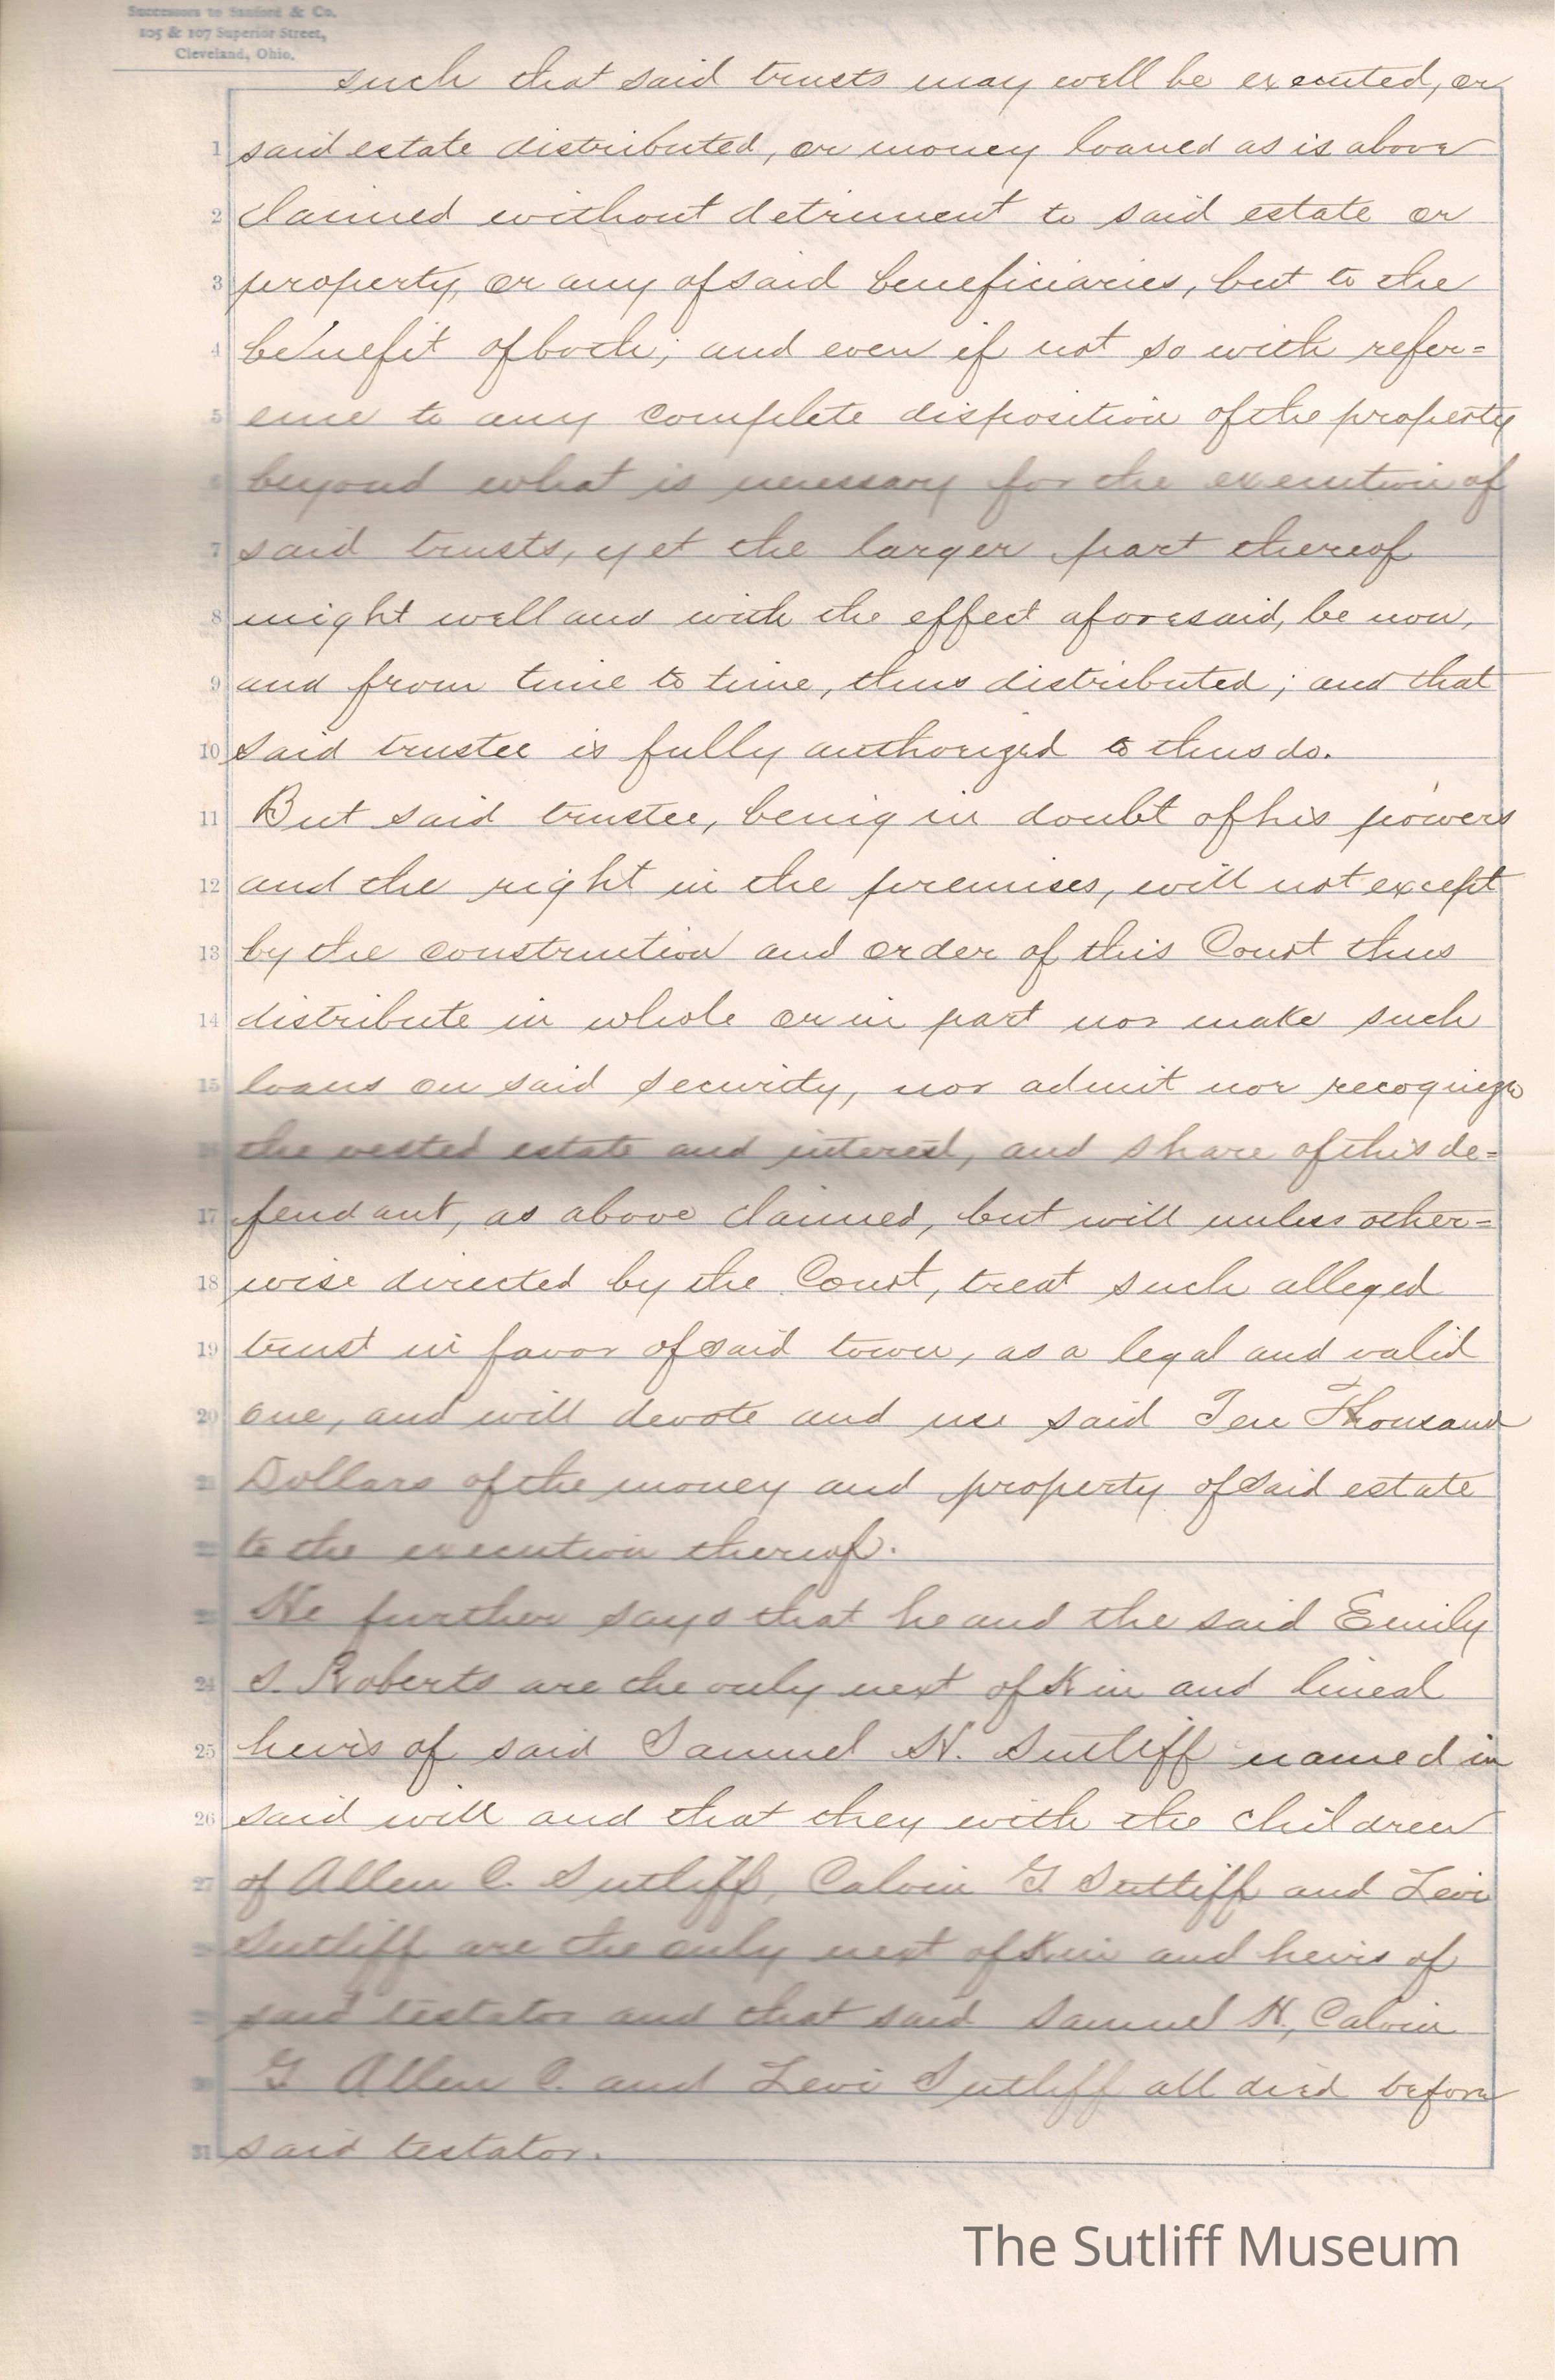 Successors to Sanford & Co.
105 & 107 Superior Street,
Cleveland, Ohio.
such that said trusts may well be executed, or
1 said estate distributed, or money loaned as is above
2 claimed without detriment to said estate or
3 property, or any of said beneficiaries, but to the
4 benefit of both; and even if not so with refer=
5 ence to any complete disposition of the property
6 beyond what is necessary for the execution of
7 said trusts, yet the larger part thereof
8 might well and with the effect aforesaid, be now,
9 and from time to time, thus distributed; and that
10 said trustee is fully authorized to thus do.
11 But said trustee, being in doubt of his powers
12 and the right in the premises, will not except
13 by the construction and order of this Court thus
14 distribute in whole or in part nor make such
15 loans on said security, nor admit nor recognize
16 the vested estate and interest, and share of this de=
17 fendant, as above claimed, but will unless other=
18 wise directed by the Court, treat such alleged
19 trust in favor of said town, as a legal and valid
20 one, and will devote and use said Ten Thousand
21 Dollars of the money and property of said estate
22 to the execution thereof.
23 He further says that he and the said Emily
24 S. Roberts are the only next of Kin and lineal
25 heirs of said Samuel H. Sutliff named in
26 said will and that they with the children
27 of Allen C. Sutliff, Calvin G. Sutliff and Levi
28 Sutliff are the only next of Kin and heirs of
29 said testator and that said Samuel H., Calvin
30 G Allen C. and Levi Sutliff all died before
31 said testator.
The Sutliff Museum